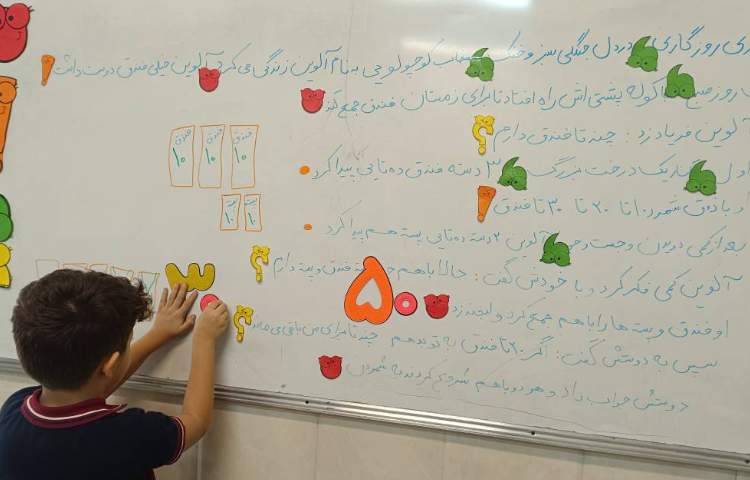 ی روزگاری در دل جنگلی سبز و خنک کوچولویی به نام آلوین زندگی می کرد. آلوین خیلی فندق دوست داشت!
روز صبح با کوله پشتی اش راه افتاد تا برای زمستان فندق جمع کند
لوین فریاد زد: چند تا فندق دارم؟
فندق ۱۰ فندق ۱۰ فندق ۱۰
یک درخت بزرگ ۳ دسته فندق ده تایی پیدا کرد
و با ذوق شمرد ۱۰ تا ۲۰ تا ۳۰ تا فندق!
۱۰ ۱۰
بعد از کمی دویدن و جست و آلوین ۲ دسته ده تایی پسته هم پیدا کرد
آلوین کمی فکر کرد و با خودش گفت: حالا با هم فندق و پسته دارم؟
او فندق و پسته ها را با هم جمع کرد و لبخند زد ۵۰
۳۰
سپس به دوستش گفت: اگر ۲۰ تا فندق به تو بدهم چند تا برای من باقی می ماند؟
دوستش جواب داد و هر دو با هم شروع کردند به شمردن